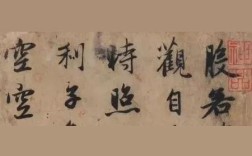 般若
觀自
時照
利子
空空